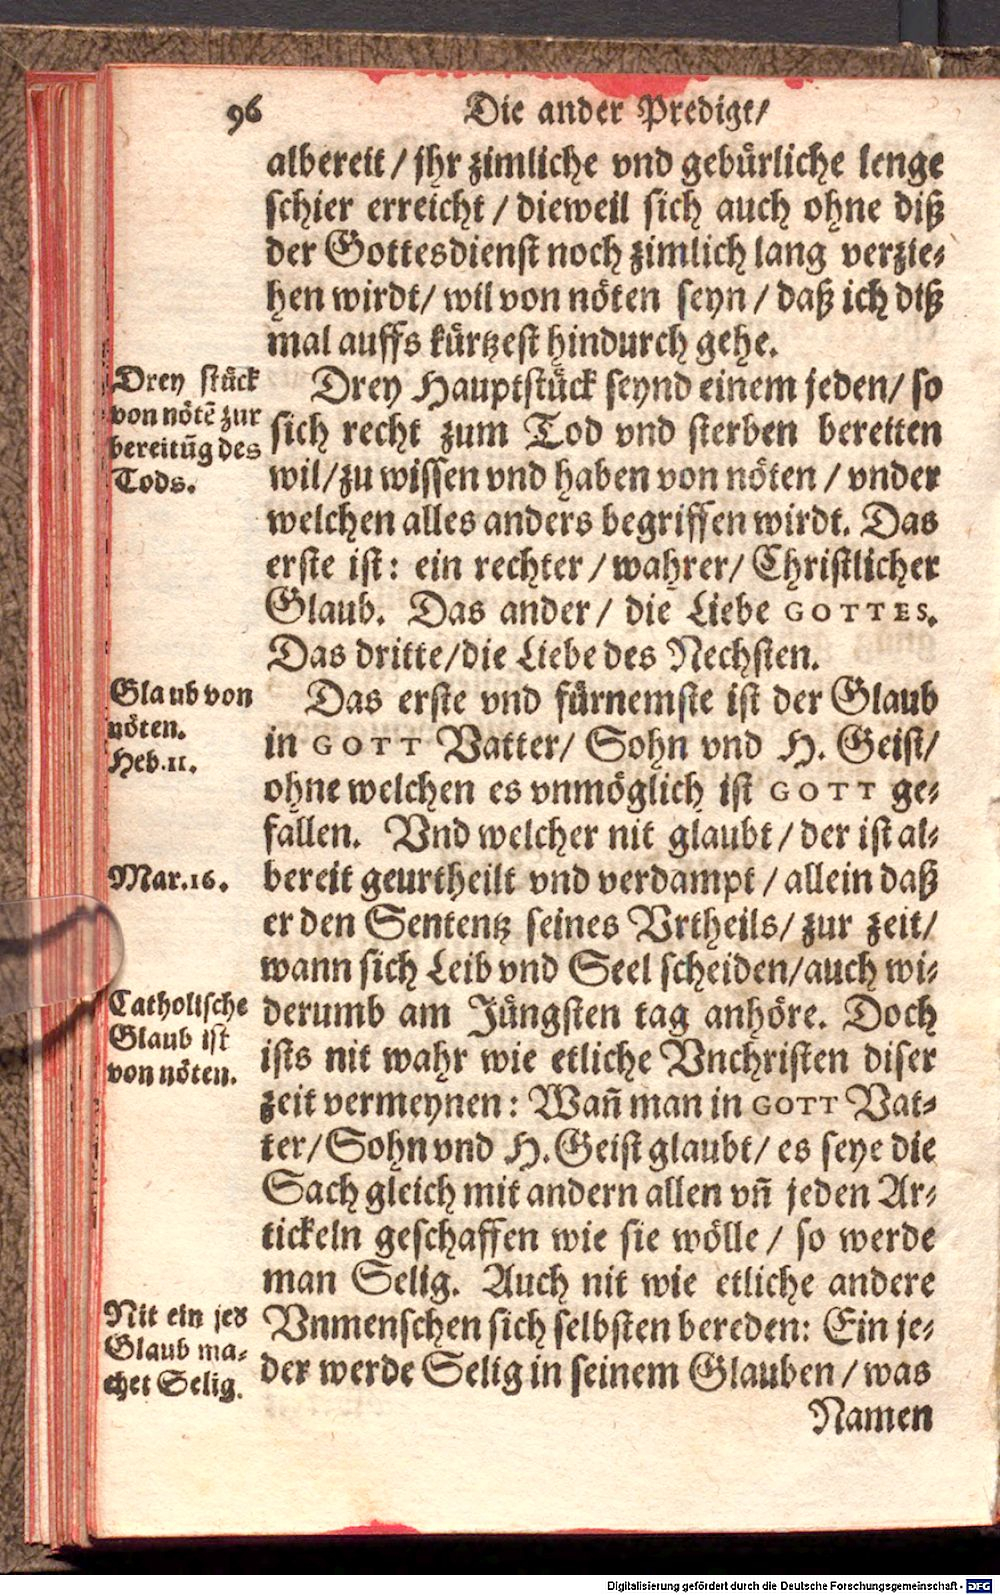 96
Die ander Predigt/
albereit / jhr zimliche vnd gebürliche lenge
schier erreicht / dieweil sich auch ohne diß
der Gottesdienst noch zimlich lang verzie-
hen wirdt/ wil von nöten seyn / daß ich diß
mal auffs kürtzest hindurch gehe.
Drey stück
von nötē zur
bereitūg des
Tods.
Drey Hauptstück seynd einem jeden/ so
sich recht zum Tod vnd sterben bereiten
wil/zu wissen vnd haben von nöten / vnder
welchen alles anders begriffen wirdt. Das
erste ist: ein rechter / wahrer/ Christlicher
Glaub. Das ander/ die Liebe GOTTES.
Das dritte/die Liebe des Nechsten.
Glaub von
nöten.
Heb.11.
Das erste vnd fürnemste ist der Glaub
in GOTT Vatter/ Sohn vnd H. Geist/
ohne welchen es vnmöglich ist GOTT ge-
fallen. Vnd welcher nit glaubt / der ist al-
Mar.16.
bereit geurtheilt vnd verdampt / allein daß
er den Sententz seines Vrtheils/ zur zeit/
wann sich Leib vnd Seel scheiden/auch wi-
Catholische
Glaub ist
von nöten.
derumb am Jüngsten tag anhöre. Doch
ists nit wahr wie etliche Vnchristen diser
zeit vermeynen: Wañ man in GOTT Vat-
ter/Sohn vnd H.Geist glaubt/ es seye die
Sach gleich mit andern allen vñ jeden Ar-
tickeln geschaffen wie sie wölle / so werde
man Selig. Auch nit wie etliche andere
Nit ein jed
Glaub ma-
chet Selig.
Vnmenschen sich selbsten bereden: Ein je-
der werde Selig in seinem Glauben / was
Namen
Digitalisierung gefördert durch die Deutsche Forschungsgemeinschaft - DFG